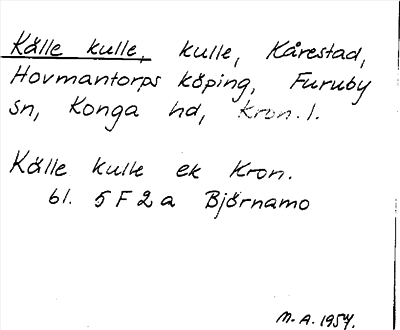 Källe kulle, kulle, Kårestad,
Hovmantorps köping, Furuby
sn, Konga hd, Kron. l.
Källe kulle ek Kron.
bl. 5 F 2 a Björnamo
M. A. 1957.